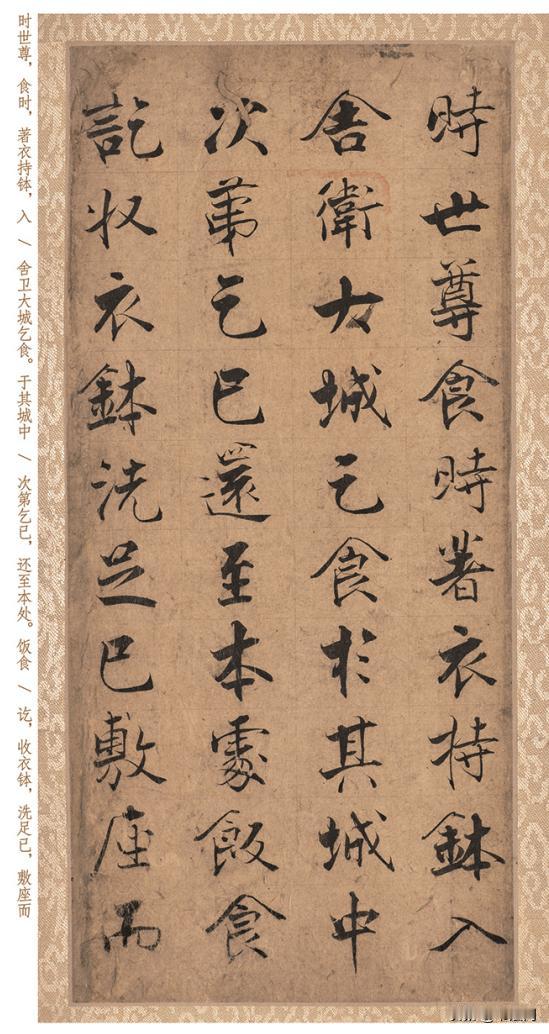 時世尊食時着衣持鉢入
舍衛大城乞食於其城中
次第乞已還至本處飯食
訖収衣鉢洗足已敷座而
时世尊，食时，著衣持钵，入 \ 舍卫大城乞食。于其城中 \ 次第乞已，还至本处。饭食 \ 讫，收衣钵，洗足已，敷座而